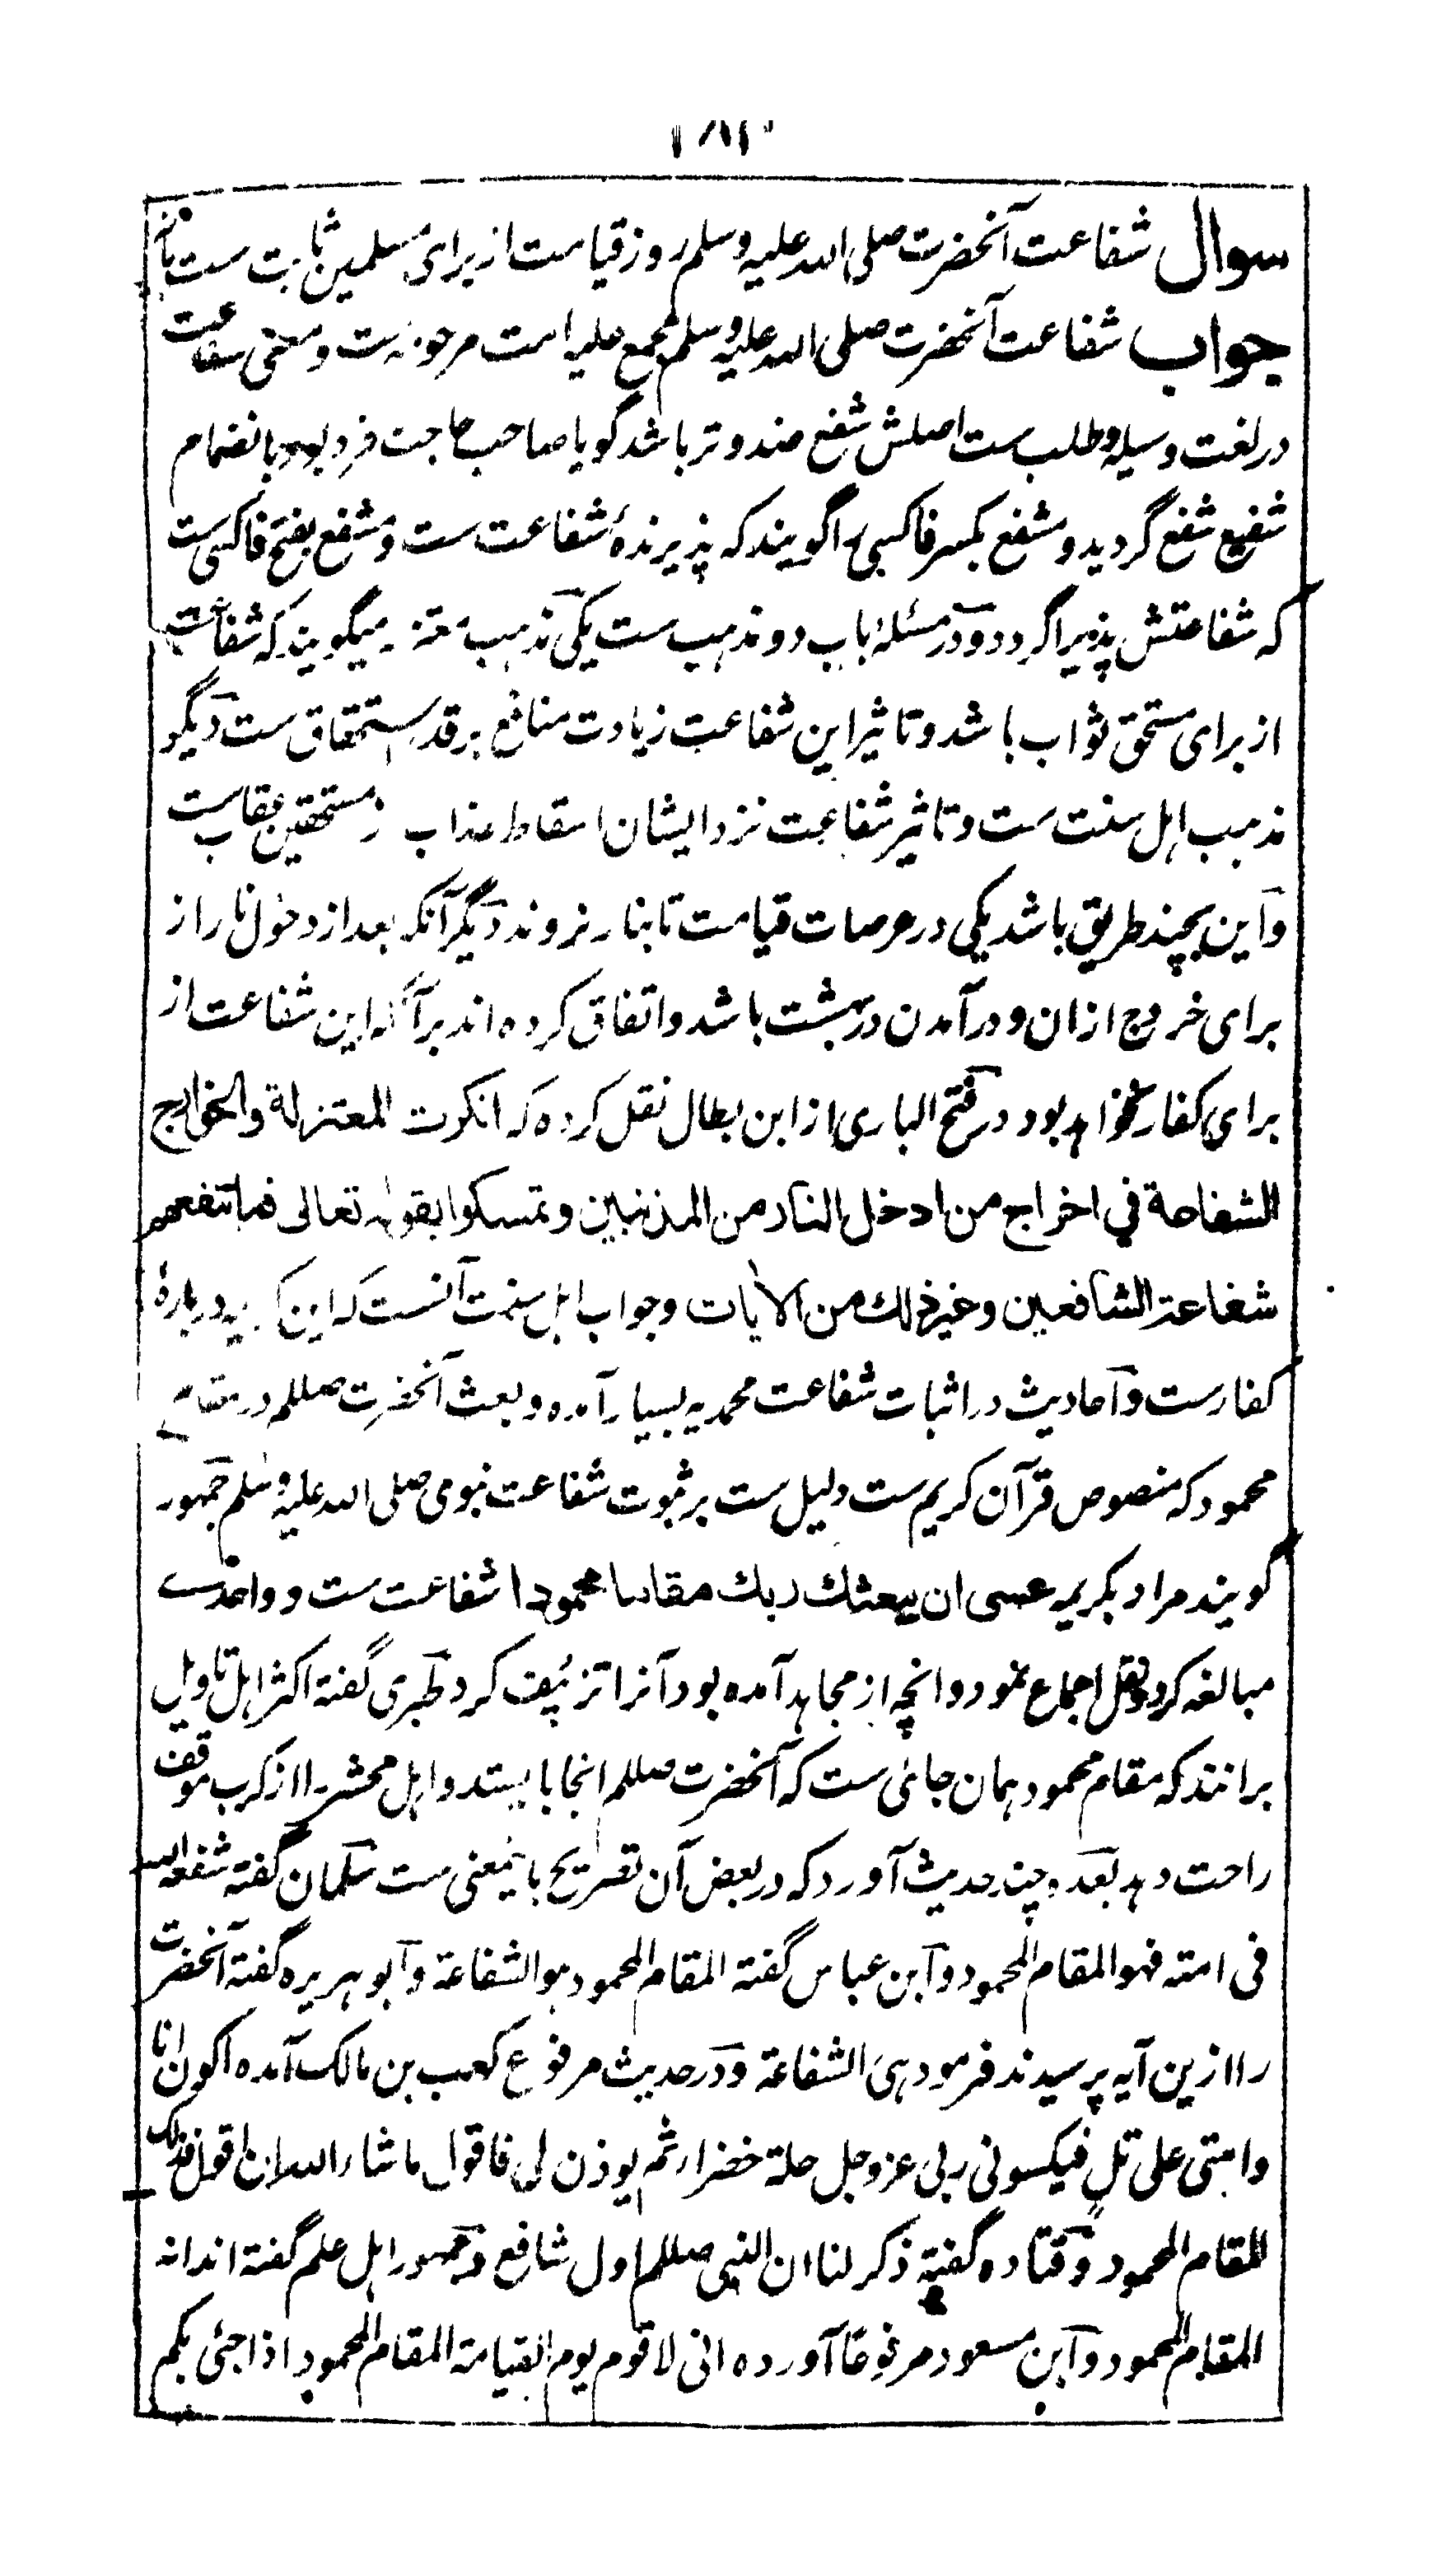 سوال شفاعت آنحضرت صلی الله علیه وسلم روز قیامت از برای مسلمین ثابت ست یا نه
جواب شفاعت آنحضرت صلی الله علیه وسلم مجمع علیه است مرجوئه ست و معنی شفاعت
در لغت وسیله و طلب ست اصلش شفع ضد وتر باشد گویا صاحب حاجت فرد بود بانضمام
شفیع شفع گردید و مشفع بکسر فا کسی را گویند که پذیرندهٔ شفاعت ست و مشفع بفتح فا کسی ست
که شفاعتش پذیرا گردد و در مسئلهٔ باب دو مذهب ست یکی مذهب معتزله میگویند که شفاعت
از برای مستحق ثواب باشد و تاثیر این شفاعت زیادت منافع بر قدر استحقاق ست دیگر
مذهب اهل سنت ست و تاثیر شفاعت نزد ایشان اسقاط عذاب از مستحقین عقاب ست
و این بچند طریق باشد یکی در عرصات قیامت تا بنار نروند دیگر آنکه بعد از دخول نار از
برای خروج ازان و در آمدن در بهشت باشد و اتفاق کرده اند بر آنکه این شفاعت از
برای کفار نخواهد بود در فتح الباری از ابن بطال نقل کرده که انکرت المعتزلة والخوارج
الشفاعة في اخراج من ادخل النار من المذنبين وتمسكوا بقوله تعالى فما تنفعهم
شفاعة الشافعين وغير ذلك من الآيات و جواب اهل سنت آنست که این کریمه در بارهٔ
کفارست و احادیث در اثبات شفاعت محمدیه بسیار آمده و بعث آنحضرت صللم در مقامی
محمود که منصوص قرآن کریم ست دلیل ست بر ثبوت شفاعت نبوی صلی الله علیه وسلم جمهور
گویند مراد بکریمه عسى ان يبعثك ربك مقاما محمودا شفاعت ست و واحدی
مبالغه کرد و نقل اجماع نمود و انچه از مجاهد آمده بود آنرا تزئیف کرد طبری گفته اکثر اهل تاویل
برانند که مقام محمود همان جائی ست که آنحضرت صللم انجا بایستد و اهل محشر را از کرب موقف
راحت دهد بعده چند حدیث آورد که در بعض آن تصریح باینمعنی ست سلمان گفته شفعه الله
فی امته فهو المقام المحمود و ابن عباس گفته المقام المحمود هو الشفاعة و ابو هریره گفته آنحضرت
را ازین آیه پرسیدند فرمود هی الشفاعة و در حدیث مرفوع کعب بن مالک آمده اکون انا
وامتی علی تلٍ فیکسونی ربی عز وجل حلة خضراء ثم یوذن لی فاقول ما شاء الله ان اقول فذلک
المقام المحمود و قتاده گفته ذکر لنا ان النبی صللم اول شافع و جمهور اهل علم گفته اند انه
المقام المحمود و ابن مسعود مرفوعًا آورده انی لاقوم یوم القیامة المقام المحمود اذا جئی بکم